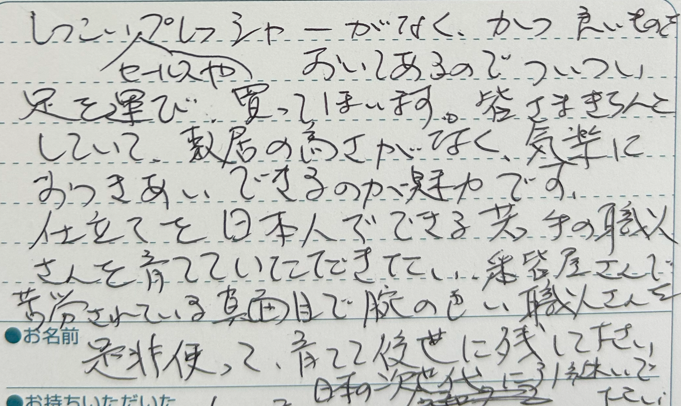 しつこいプレッシャーがなく、かつ良いものを
セールスや
おいてあるのでついつい
足を運び、買ってしまいます。皆さまきちんと
していて、敷居の高さがなく、気楽に
おつきあいできるのが魅力です。
仕立てを日本人でできる若手の職人
さんを育てていただきたい、、 屋さんで
苦労されている真面目で腕の良い職人さんを
●お名前
是非使って、育てて後世に残して下さい
日本の次世代に引き継いで
下さい
●お持ちいただいた